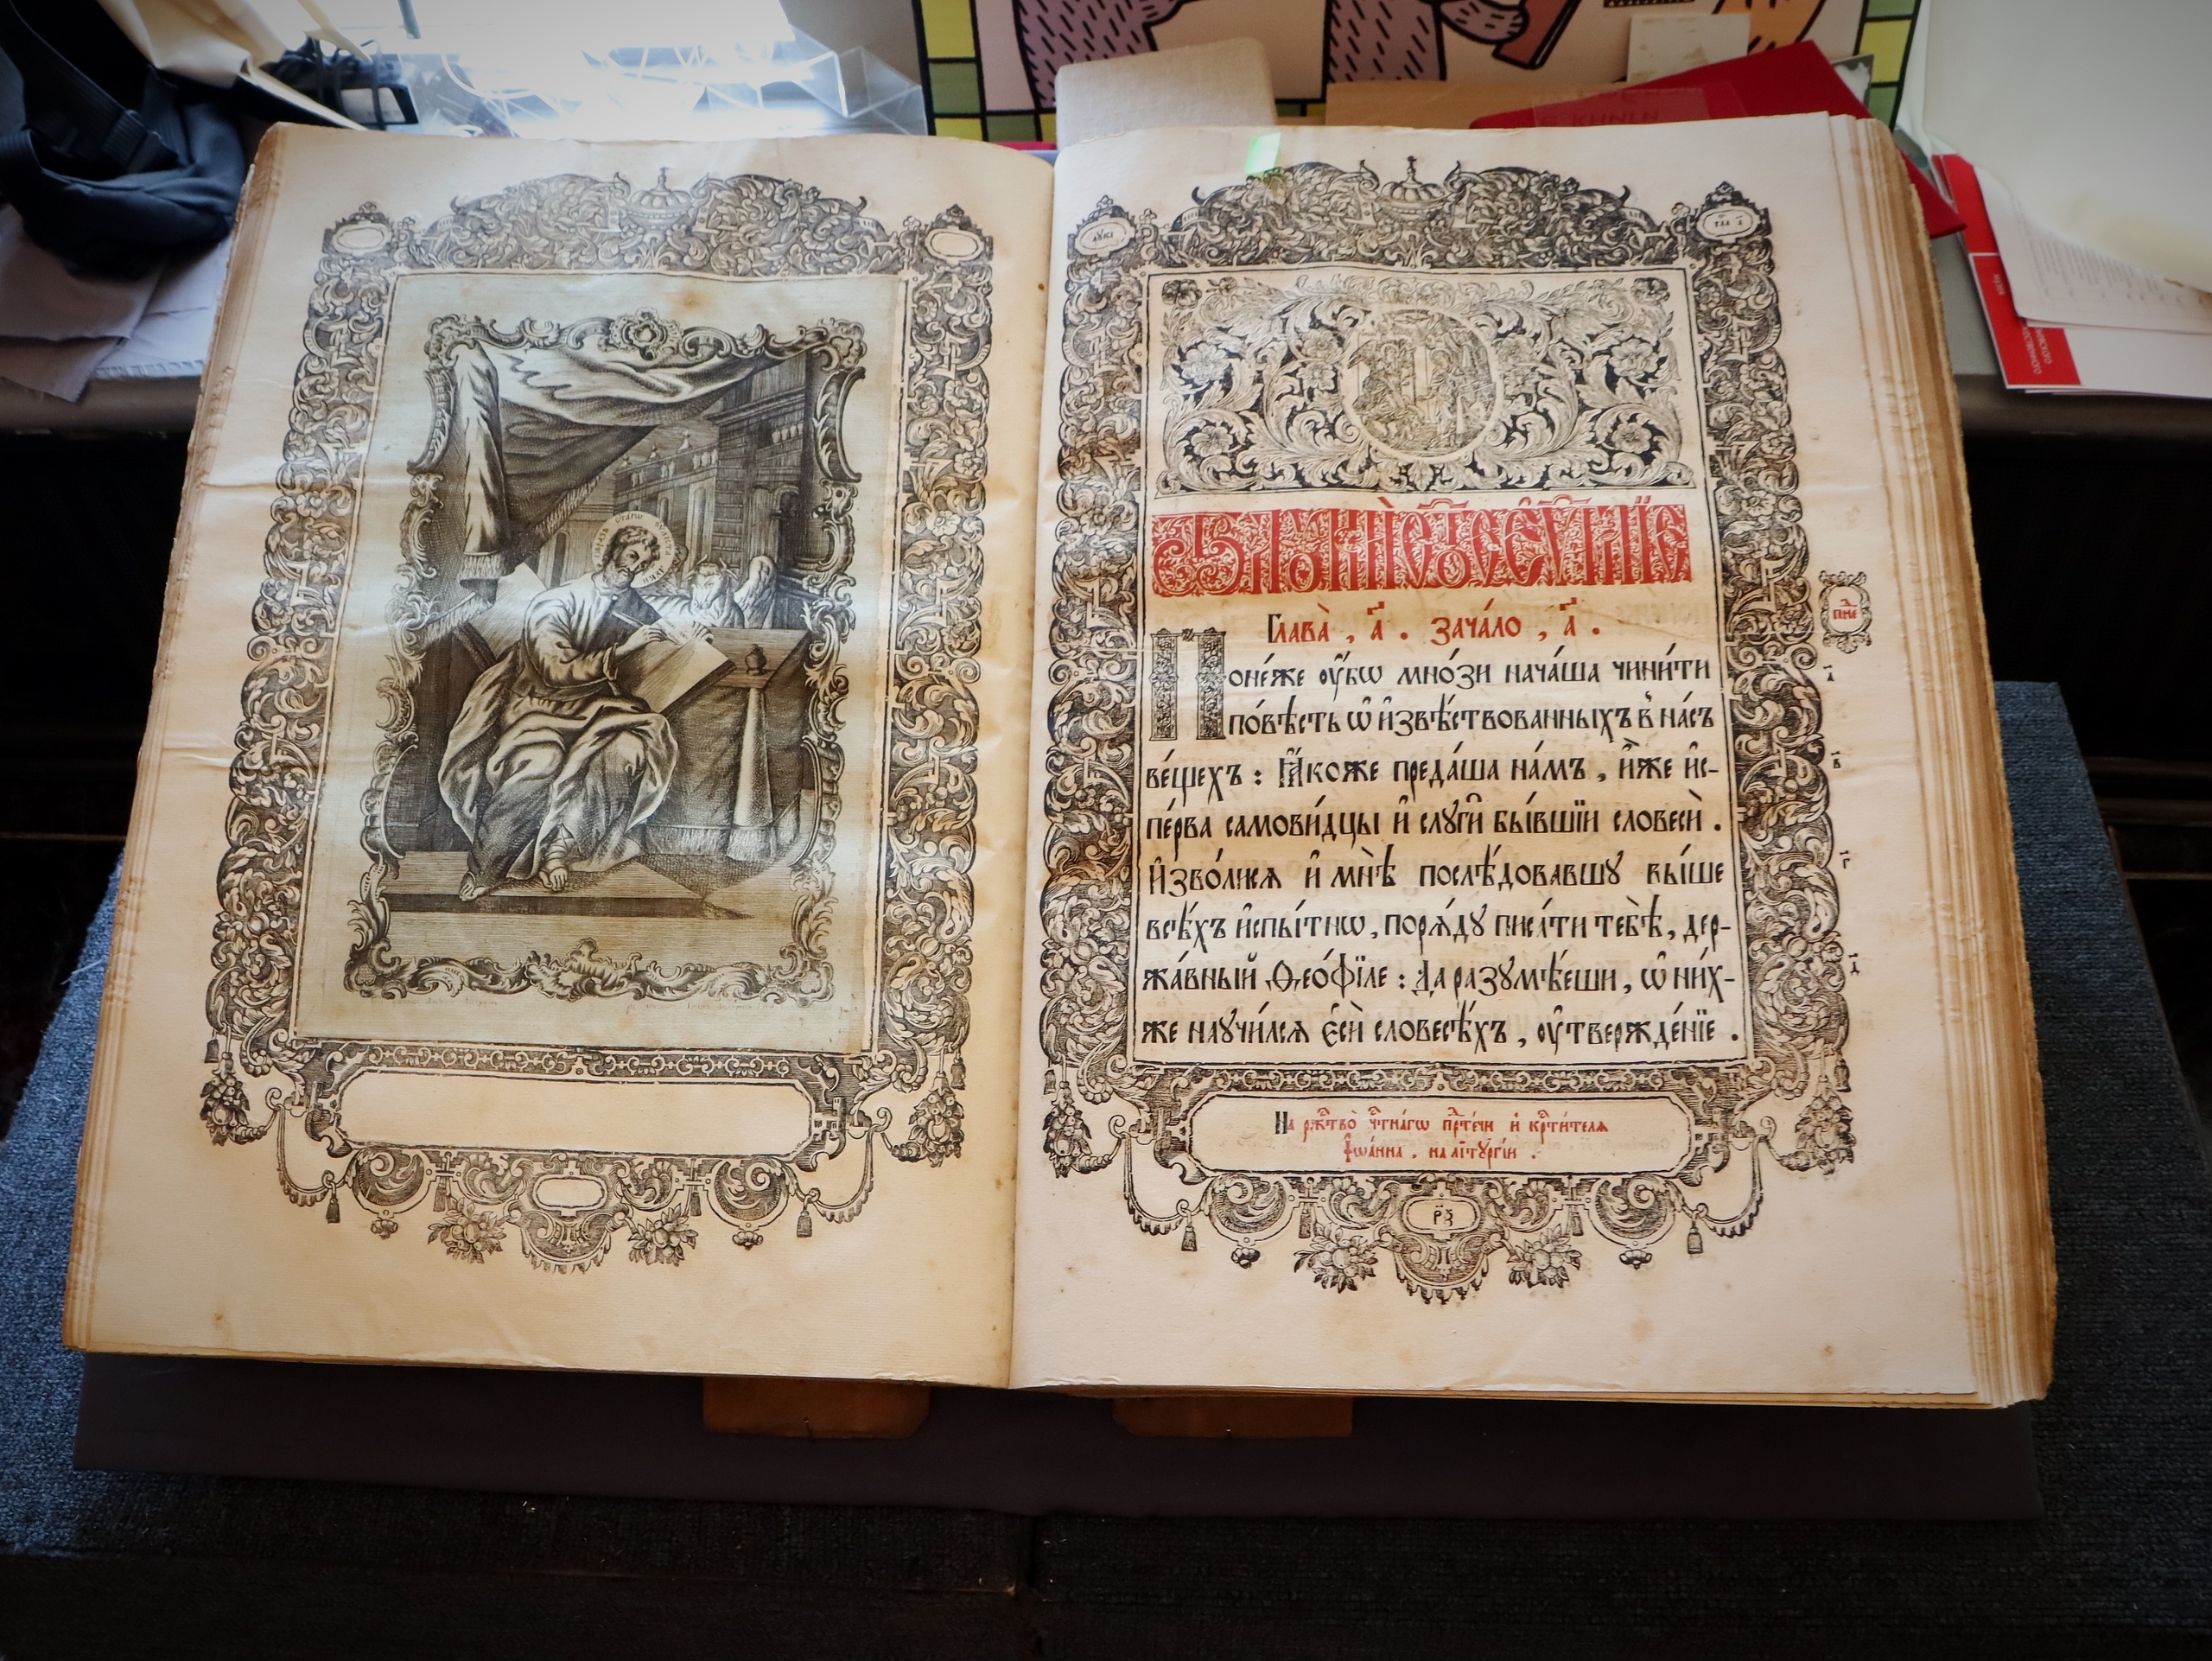 Глава̀ , а҃ . зача́ло , а҃ .
Поне́же ᲂу҆́бѡ мно́зи нача́ша чини́ти
по́вѣсть ѡ҆ и҆звѣ́ствованныхъ в̾ на́съ
ве́щехъ : Ꙗ҆́коже преда́ша на́мъ , и҆̀же и҆с-
пе́рва самови́дцы и҆ слꙋги̑ бы́вшїи словесѐ .
И҆зво́лисѧ и҆ мнѣ̀ послѣ́довавшꙋ вы́ше
всѣ́хъ и҆спы́тнѡ , порѧ́дꙋ писа́ти тебѣ̀ , дер-
жа́вный Ѳео́фїле : Да разꙋмѣ́еши , ѡ҆ ни́х-
же наꙋчи́лсѧ є҆сѝ словесѣ́хъ , ᲂу҆твержде́нїе .
На ржⷭ҇тво̀ чⷭ҇тна́гѡ прⷣте́чи и҆ крⷭ҇ти́телѧ
І҆ѡа́нна , на лїтꙋргі́и .
р҃ѯ